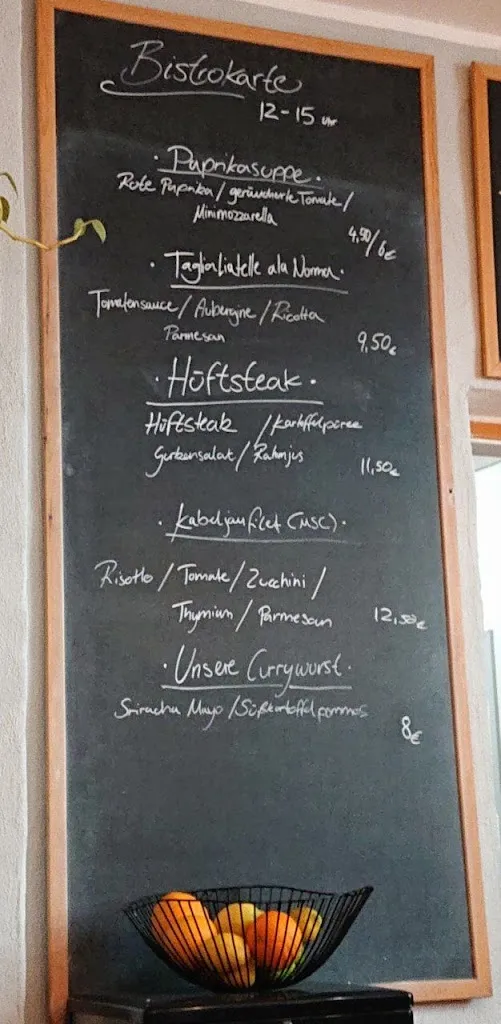 Bistrokarte
12-15 Uhr
· Paprikasuppe ·
Rote Paprika / geräucherte Tomate /
Minimozzarella
4,50/6€
· Tagliatelle ala Norma ·
Tomatensauce / Aubergine / Ricotta
Parmesan
9,50€
· Hüftsteak ·
Hüftsteak / Kartoffelpüree
Gurkensalat / Rahmjus
11,50€
· Kabeljaufilet (MSC) ·
Risotto / Tomate / Zucchini /
Thymian / Parmesan
12,50€
· Unsere Currywurst ·
Sriracha Mayo / Süßkartoffelpommes
8€